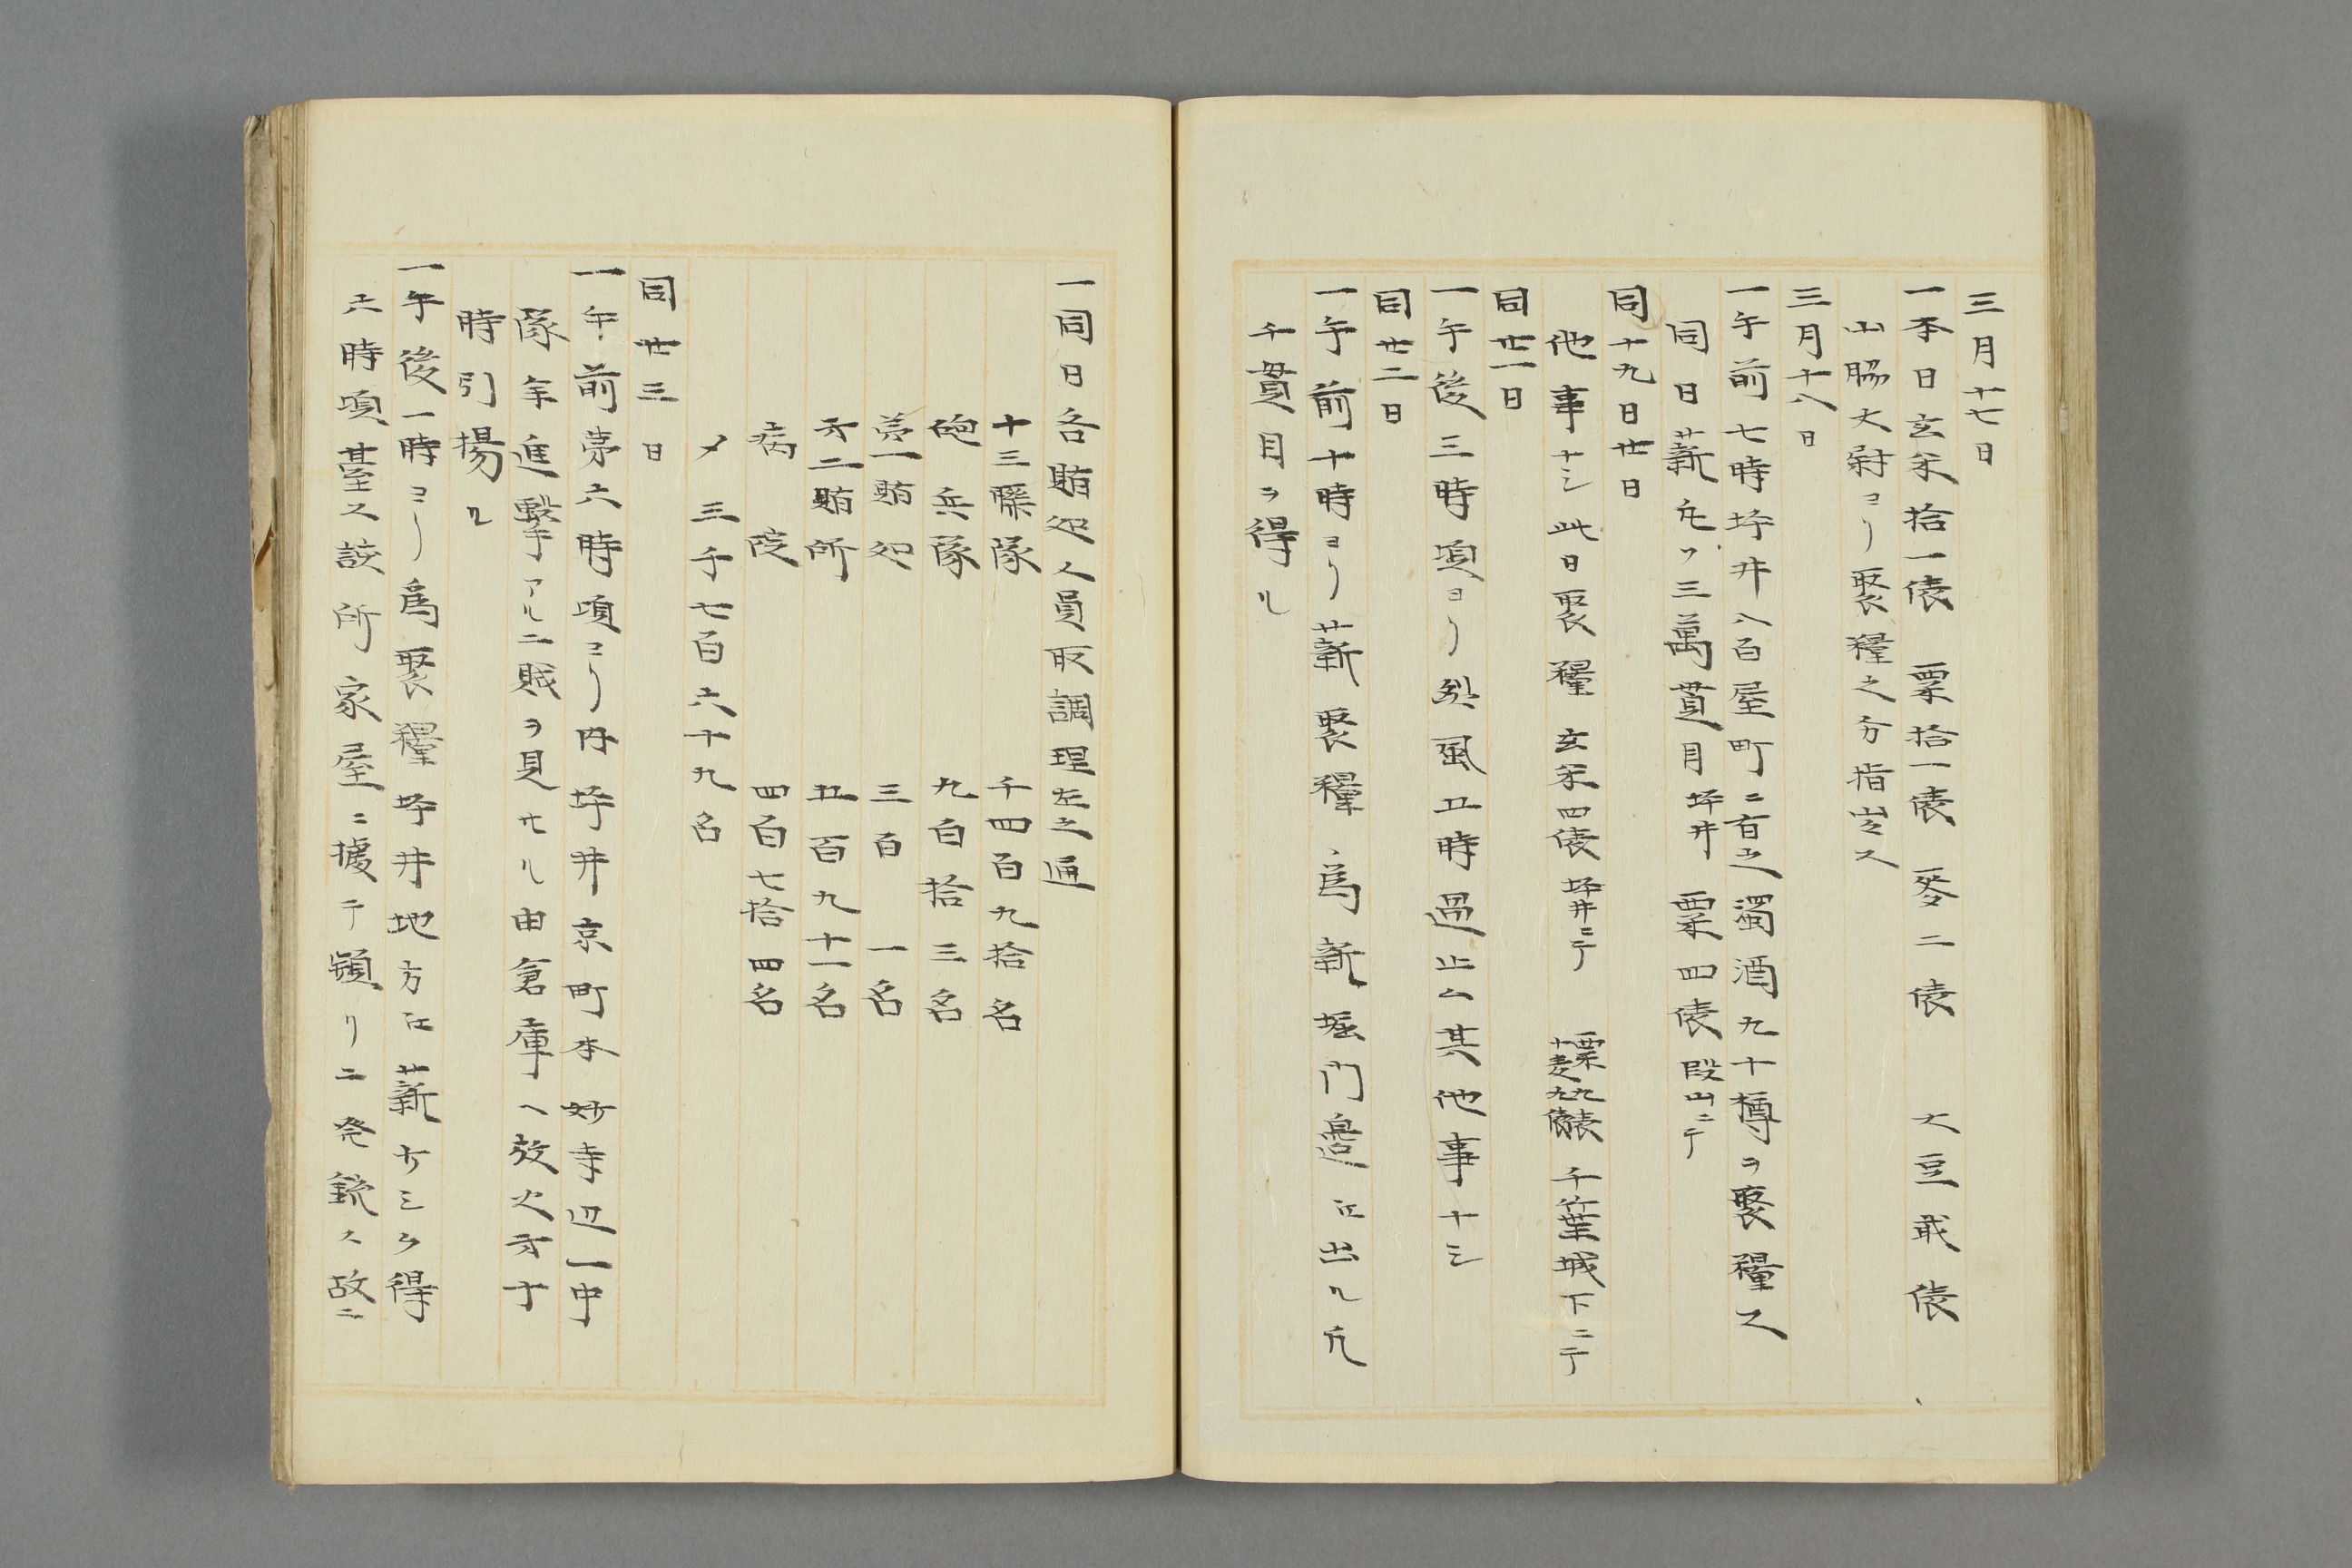 三月十七日
一本日玄米拾一俵　粟拾一俵　麥二俵　大豆貮俵
山脇大尉ヨリ聚糧之方指定ス
三月十八日
一午前七時坪井八百屋町ニ有之濁酒九十樽ヲ聚糧ス
同日薪凡ソ三萬貫目坪井　粟四俵段山ニテ
同十九日廿日
他事ナシ此日聚糧　玄米四俵坪井ニテ　粟九俵　千葉城下ニテ
同廿一日
一午後三時頃ヨリ烈風五時過止ム其他事ナシ
同廿二日
一午前十時ヨリ薪聚糧ノ為新堀門邉江出ル凡
千貫目ヲ得ル
一同日各賄処人員取調理左之通
十三聯隊　千四百九拾名
砲兵隊　九百拾三名
第一賄処　三百一名
才二賄所　五百九十一名
病院　四百七拾四名
〆　三千七百六十九名
同廿三日
一午前第六時頃ヨリ内坪井京町本妙寺辺一中
隊年進撃アル二賊ヲ見サル由倉庫ヘ放火才十
時引揚ル
一午後一時ヨリ為聚糧坪井地方江薪少シク得
六時頃臺ス該所家屋ニ據テ頻リニ発銃ス故ニ